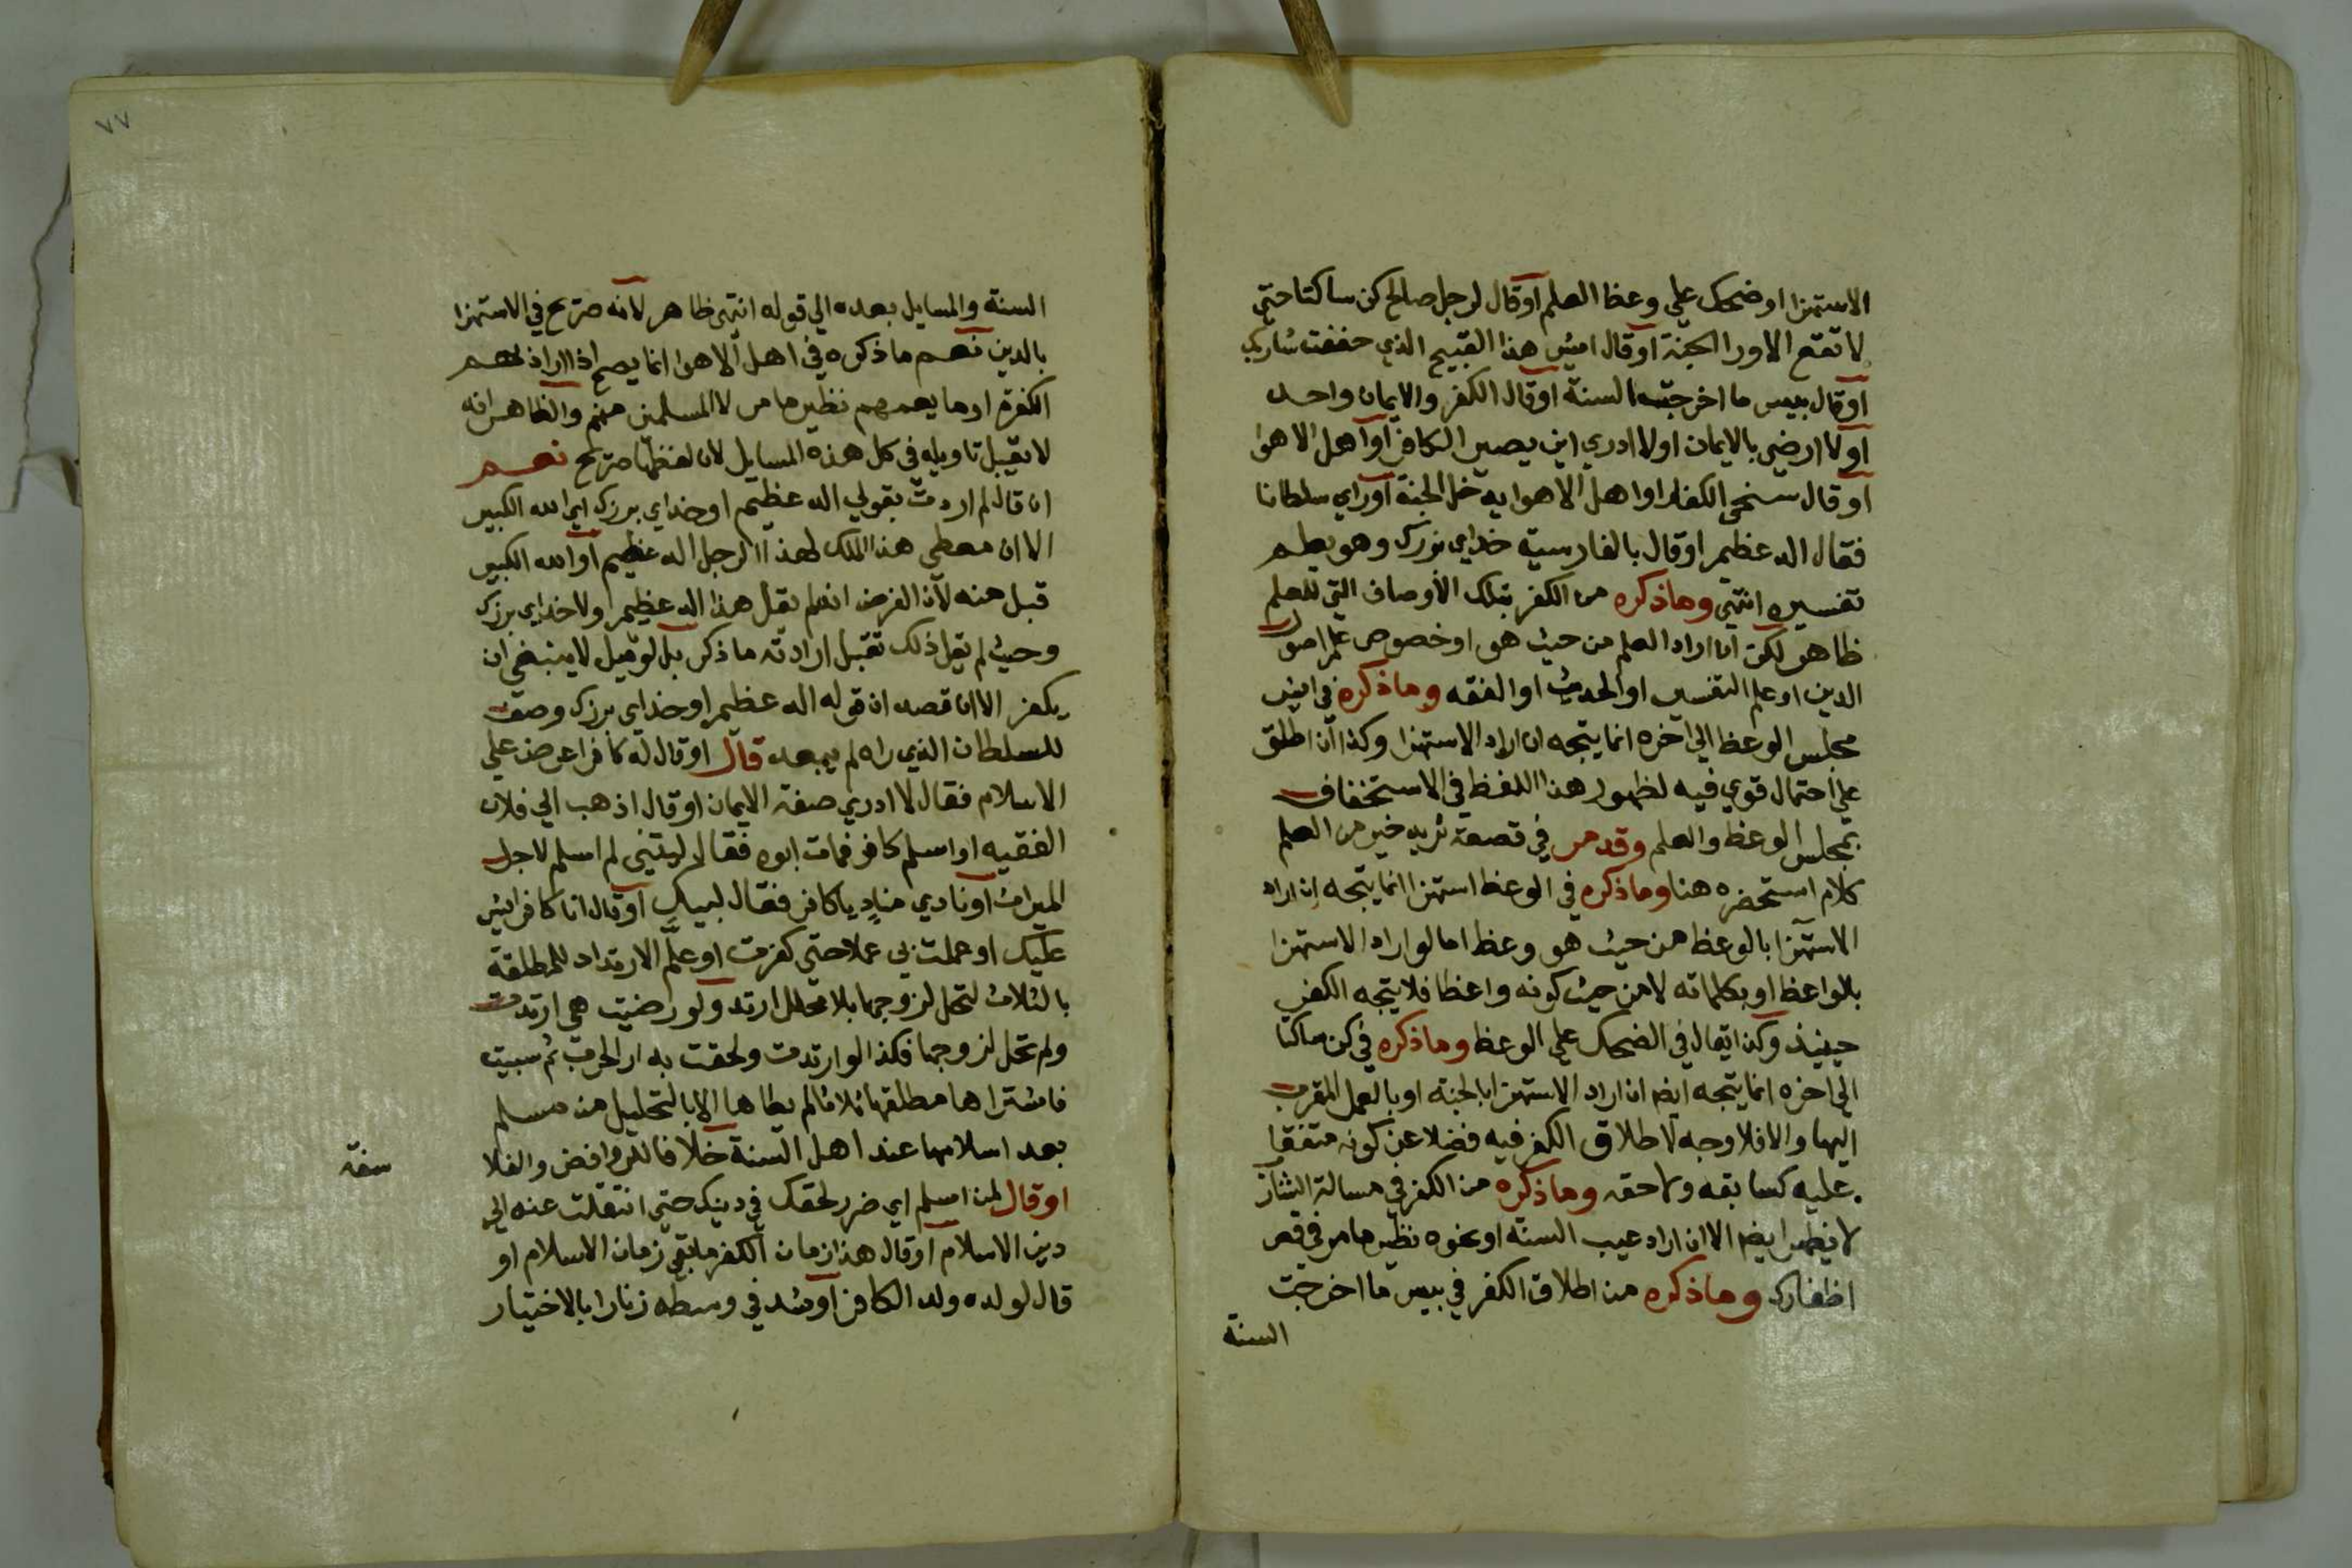 الاستهزا او ضحك علي وعظ العلم او قال لرجل صالح كن ساكتا حتي
لا تقع الا ورا الجنة او قال ايش هذا القبيح الذي حففت شاربك
او قال بيس ما اخرجته السنة او قال الكفر والايمان واحد
او لا ارضي بالايمان او لا ادري اين يصير الكافر او اهل الاهوا
او قال سنحي الكفار او اهل الاهوا يدخل الجنة او راي سلطانا
فقال اله عظيم او قال بالفارسية خداي بزرك وهو يعلم
تفسيره انتهي وما ذكره من الكفر بتلك الاوصاف التي للعلم
ظاهر لكن ان اراد العلم من حيث هو او خصوص علم اصول
الدين او علم التفسير او الحديث او الفقه وما ذكره في ايش
مجلس الوعظ الي اخره انما يتجه ان اراد الاستهزا وكذا ان اطلق
علي احتمال قوي فيه لظهور هذا اللفظ في الاستخفاف
بمجلس الوعظ والعلم وقد مر في قصعة ثريد خير من العلم
كلام استحضره هنا وما ذكره في الوعظ استهزا انما يتجه ان اراد
الاستهزا بالوعظ من حيث هو وعظ اما لو اراد الاستهزا
بالواعظ او بكلماته لا من حيث كونه واعظا فلا يتجه الكفر
حينيذ وكذا يقال في الضحك علي الوعظ وما ذكره في كن ساكتا
الي اخره انما يتجه ايضا ان اراد الاستهزا بالجنة او بالعمل المقرب
اليها والا فلا وجه لاطلاق الكفر فيه فضلا عن كونه متفقا
عليه كسابقه ولاحقه وما ذكره من الكفر في مسالة الشارب
لا يظهر ايضا الا ان اراد عيب السنة او نحوه نظير ما مر في قص
اظفارك وما ذكره من اطلاق الكفر في بيس ما اخرجت
السنة
٧٧
السنة والمسايل بعده الي قوله انتهي ظاهر لانه صريح في الاستهزا
بالدين نعم ما ذكره في اهل الاهوا انما يصح اذا اراد بهم
الكفرة او ما يعمهم نظير ما مر لا المسلمين منهم والظاهر انه
لا يقبل تاويله في كل هذه المسايل لان لفظها صريح نعم
ان قال لم اردت بقولي اله عظيم او خداي بزرك اي الله الكبير
الا ان معطي هذا الملك لهذا الرجل اله عظيم او الله الكبير
قبل منه لان الفرض انه لم يقل هذا اله عظيم او لا خداي بزرك
وحيث لم يقل ذلك تقبل ارادته ما ذكر بل لو قيل لا ينبغي ان
يكفر الا ان قصد ان قوله اله عظيم او خداي بزرك وصف
للسلطان الذي راه لم يبعد قال او قال له كافر اعرض علي
الاسلام فقال لا ادري صفة الايمان او قال اذهب الي فلان
الفقيه او اسلم كافر فمات ابوه فقال ليتني لم اسلم لاجل
الميراث او نادي مناد يا كافر فقال لبيك او قال انا كافر ايش
عليك او عملت بي عملا حتي كفرت او علم الارتداد للمطلقة
بالثلاث لتحل لزوجها بلا محلل ارتد ولو رضيت هي ارتدت
ولم تحل لزوجها فكذا لو ارتدت ولحقت بدار الحرب ثم سبيت
فاشتراها مطلقها ثلاثا لم يطاها الا بالتحليل من مسلم
بعد اسلامها عند اهل السنة خلافا للروافض والفلا
سفة
او قال لمن اسلم اي ضرر لحقك في دينك حتي انتقلت عنه الي
دين الاسلام او قال هذا زمان الكفر ما بقي زمان الاسلام او
قال لولده ولد الكافر او شد في وسطه زنارا بالاختيار